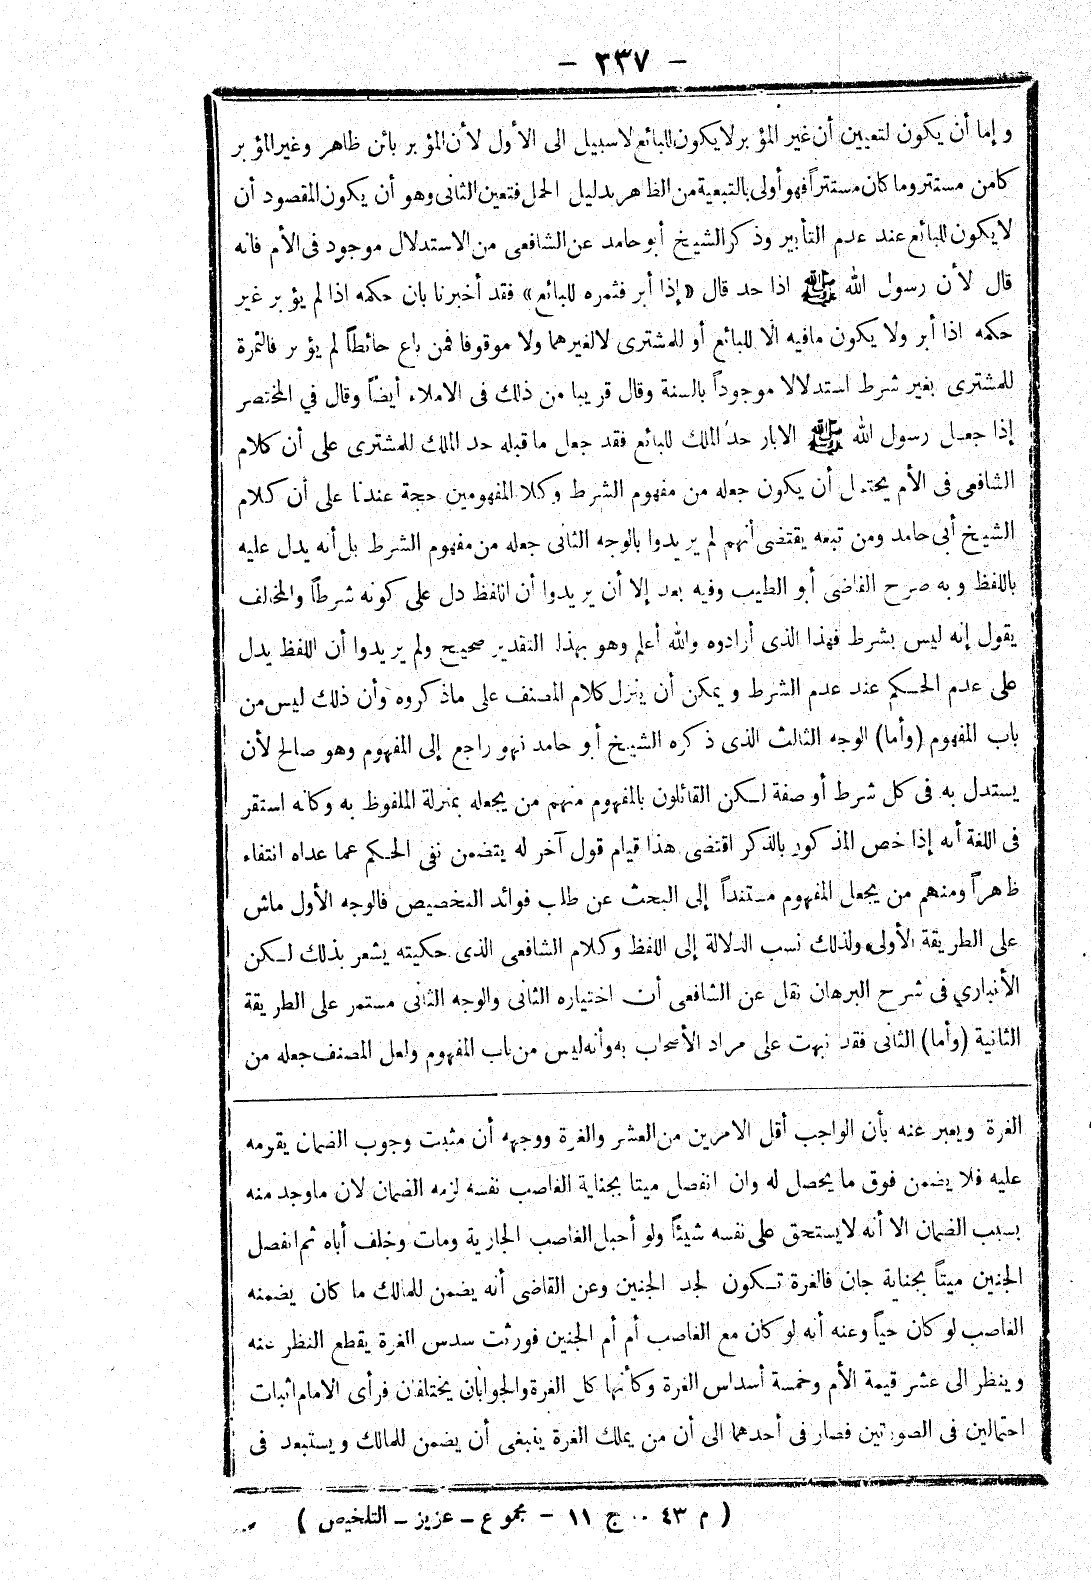 — ٣٣٧ —
وإما أن يكون لتعيين أن غير المؤبر لا يكون للبائع لا سبيل الى الأول لأن المؤبر بائن ظاهر وغير المؤبر
كامن مستتر وما كان مستتراً فهو أولى بالتبعية من الظاهر بدليل الحمل فتعين الثانى وهو أن يكون المقصود أن
لا يكون للبائع عند عدم التأبير وذكر الشيخ أبو حامد عن الشافعى من الاستدلال موجود فى الأم فانه
قال لأن رسول الله ﷺ اذا حد قال «إذا أبر فثمره للبائع» فقد أخبرنا بان حكمه اذا لم يؤبر غير
حكمه اذا أبر ولا يكون مافيه الا للبائع أو للمشترى لا لغيرهما ولا موقوفا فمن باع حائطاً لم يؤبر فالثمرة
للمشترى بغير شرط استدلالا موجوداً بالسنة وقال قريبا من ذلك فى الاملاء أيضاً وقال في المختصر
إذا جعل رسول الله ﷺ الابار حد الملك للبائع فقد جعل ما قبله حد الملك للمشترى على أن كلام
الشافعى فى الأم يحتمل أن يكون جعله من مفهوم الشرط وكلا المفهومين حجة عندنا على أن كلام
الشيخ أبى حامد ومن تبعه يقتضى أنهم لم يريدوا بالوجه الثانى جعله من مفهوم الشرط بل أنه يدل عليه
باللفظ وبه صرح القاضى أبو الطيب وفيه بعد إلا أن يريدوا أن اللفظ دل على كونه شرطاً والمخالف
يقول إنه ليس بشرط فهذا الذى أرادوه والله أعلم وهو بهذا التقدير صحيح ولم يريدوا أن اللفظ يدل
على عدم الحكم عند عدم الشرط ويمكن أن ينزل كلام المصنف على ماذكروه وأن ذلك ليس من
باب المفهوم (وأما) الوجه الثالث الذى ذكره الشيخ أبو حامد فهو راجع إلى المفهوم وهو صالح لأن
يستدل به فى كل شرط أو صفة لكن القائلون بالمفهوم منهم من يجعله بمنزلة الملفوظ به وكانه استقر
فى اللغة أنه إذا خص المذكور بالذكر اقتضى هذا قيام قول آخر له يتضمن نفى الحكم عما عداه انتفاء
ظاهراً ومنهم من يجعل المفهوم مستنداً إلى البحث عن طلب فوائد التخصيص فالوجه الأول ماش
على الطريقة الأولى ولذلك نسب الدلالة إلى اللفظ وكلام الشافعى الذى حكيته يشعر بذلك لكن
الأنباري فى شرح البرهان نقل عن الشافعى أن اختياره الثانى والوجه الثانى مستمر على الطريقة
الثانية (وأما) الثانى فقد نبهت على مراد الأصحاب به وأنه ليس من باب المفهوم ولعل المصنف جعله من
الغرة ويعبر عنه بأن الواجب أقل الامرين من العشر والغرة ووجهه أن مثبت وجوب الضمان يقومه
عليه فلا يضمن فوق ما يحصل له وان انفصل ميتا بجناية الغاصب نفسه لزمه الضمان لان ماوجد منه
بسبب الضمان الا أنه لا يستحق على نفسه شيئاً ولو أحبل الغاصب الجارية ومات وخلف أباه ثم انفصل
الجنين ميتاً بجناية جان فالغرة تكون لجد الجنين وعن القاضى أنه يضمن للمالك ما كان يضمنه
الغاصب لو كان حياً وعنه أنه لو كان مع الغاصب أم أم الجنين فورثت سدس الغرة يقطع النظر عنه
وينظر الى عشر قيمة الأم وخمسة أسداس الغرة وكأنها كل الغرة والجوابان يختلفان فرأى الامام اثبات
احتمالين فى الصورتين فصار فى أحدهما الى أن من يملك الغرة ينبغى أن يضمن للمالك ويستبعد فى
( م ٤٣ .. ج ١١ – مجموع – عزيز – التلخيص )